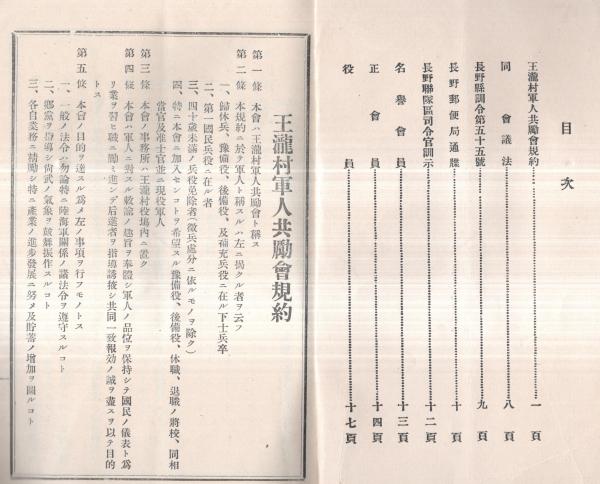 目次
王瀧村軍人共勵會規約 一頁
同會議法 八頁
長野縣訓令第五十五號 九頁
長野郵便局通牒 十頁
長野聯隊區司令官訓示 十二頁
名譽會員 十三頁
正會員 十四頁
役員 十七頁
王瀧村軍人共勵會規約
第一條 本會ハ王瀧村軍人共勵會ト稱ス
第二條 本規約ニ於テ軍人ト稱スルハ左ニ揭クル者ヲ云フ
一、歸休兵、豫備役、後備役、及補充兵役ニ在ル下士兵卒
二、第一國民兵役ニ在ル者
三、四十歲未滿ノ兵役免除者(徵兵處分ニ依ルモノヲ除ク)
四、特ニ本會ニ加入センコトヲ希望スル豫備役、後備役、休職、退職ノ將校、同相
當官及准士官並ニ現役軍人
第三條 本會ノ事務所ハ王瀧村役場內ニ置ク
第四條 本會ハ軍人ニ對スル敕諭ノ趣旨ヲ奉體シ軍人ノ品位ヲ保持シテ國民ノ儀表ト爲
リ業ヲ習ヒ職ニ勵ミ進ンデ后進者ヲ指導誘掖シ共同一致報効ノ誠ヲ盡スヲ以テ目的
トス
第五條 本會ノ目的ヲ達スル爲メ左ノ事項ヲ行フモノトス
一、一般ノ法令ハ勿論特ニ陸海軍關係ノ議法令ヲ遵守スルコト
二、鄕黨ヲ指導シ尙武ノ氣象ヲ鼓舞振作スルコト
三、各自業務ニ精勵シ特ニ產業ノ進步發展ニ努メ及貯蓄ノ增加ヲ圖ルコト